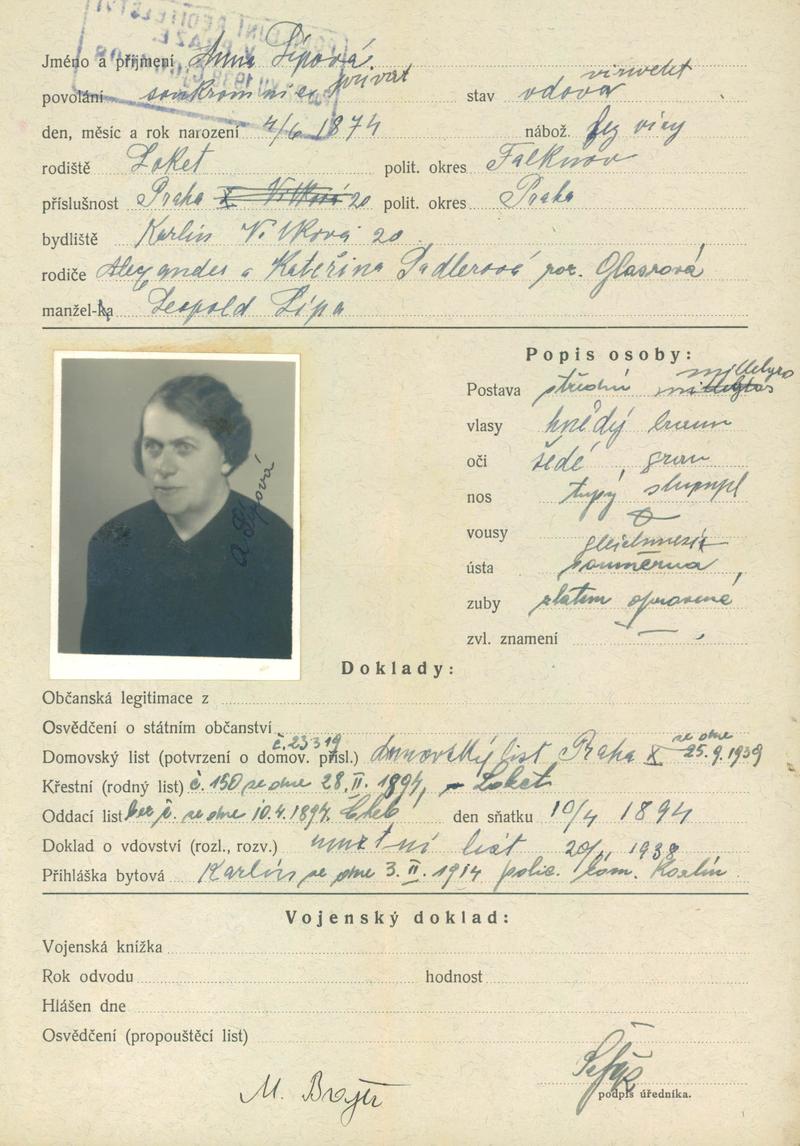 Jméno a příjmení Anna Lípová
povolání soukromnice privat stav vdova
den, měsíc a rok narození 4/6 1874 nábož. bez víry
rodiště Loket polit. okres Falknov
příslušnost Praha X Vítkova 20 polit. okres Praha
bydliště Karlín Vítkova 20
rodiče Alexander a Kateřina Sadlerová roz. Glasrová
manžel-ka Leopold Lípa
Popis osoby:
Postava střední
vlasy hnědý braun
oči šedé, grau
A. Lípová
nos tupý stumpf
vousy
ústa souměrná
zuby zlatem opravené
zvl. znamení —
Doklady:
Občanská legitimace z
Osvědčení o státním občanství
č. 23319 ze dne
Domovský list (potvrzení o domov. přísl.) domovský list Praha X 25. 9. 1939
Křestní (rodný list) č. 150 ze dne 28. II. 1894, Loket
Oddací list bez č. ze dne 10. 4. 1894. Cheb den sňatku 10/4 1894
Doklad o vdovství (rozl., rozv.) úmrtní list
Přihláška bytová Karlín ze dne 3. II. 1914 polic. kom. Karlín
Vojenský doklad:
Vojenská knížka
Rok odvodu hodnost
Hlášen dne
Osvědčení (propouštěcí list)
podpis úředníka.